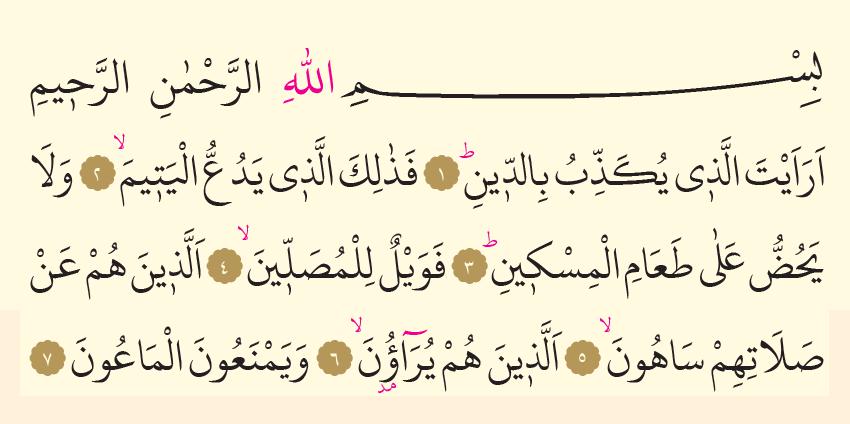 بِسْمِ اللّٰهِ الرَّحْمٰنِ الرَّحٖيمِ
اَرَاَيْتَ الَّذٖى يُكَذِّبُ بِالدّٖينِ ؕ ١ فَذٰلِكَ الَّذٖى يَدُعُّ الْيَتٖيمَ ۙ ٢ وَلَا
يَحُضُّ عَلٰى طَعَامِ الْمِسْكٖينِ ؕ ٣ فَوَيْلٌ لِلْمُصَلّٖينَ ۙ ٤ اَلَّذٖينَ هُمْ عَنْ
صَلَاتِهِمْ سَاهُونَ ۙ ٥ اَلَّذٖينَ هُمْ يُرَآؤُ۫نَ ۙ ٦ وَيَمْنَعُونَ الْمَاعُونَ ٧
مد